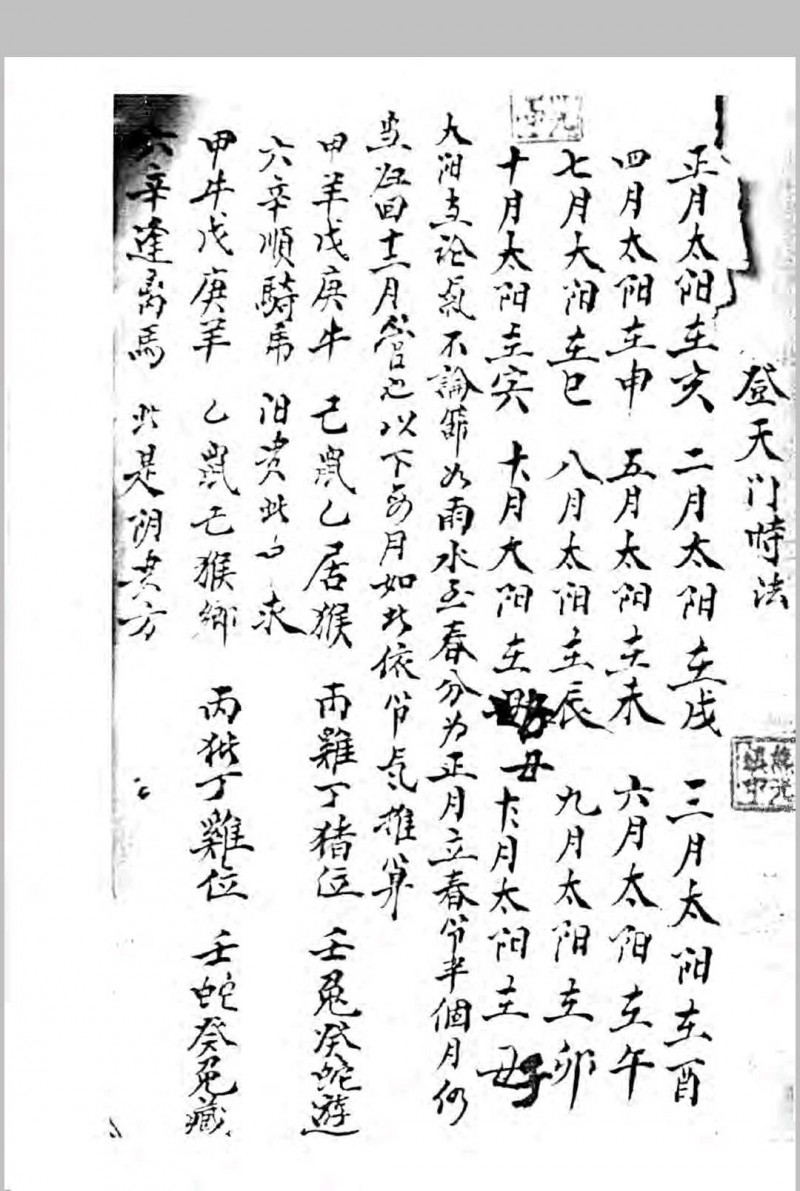 登天门時法
正月太阳在亥 二月太阳在戌 三月太阳在酉
四月太阳在申 五月太阳在未 六月太阳在午
七月太阳在巳 八月太阳在辰 九月太阳在卯
十月太阳在寅 十一月太阳在丑 十二月太阳在子
太阳 论 不論節如雨水至春分为正月立春节半個月仍
归回十二月管也以下每月如此依节気推算
甲羊戊庚牛 己鼠乙居猴 丙雞丁猪位 壬兔癸蛇遊
六辛順騎馬 阳贵此 求
甲牛戊庚羊 乙鼠己猴鄉 丙猪丁雞位 壬蛇癸兔藏
六辛逢离馬 此是阴贵方